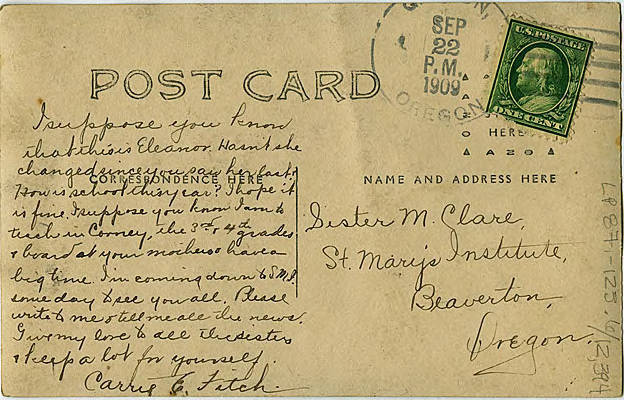 SEP
22
P.M.
1909
OREGON
U.S. POSTAGE
ONE CENT
POST CARD
HERE
AZO
CORRESPONDENCE HERE
NAME AND ADDRESS HERE
I suppose you know
that this is Eleanor. Hasn't she
changed since you saw her last?
How is school this year? I hope it
is fine. I suppose you know I am to
teach in Corney, the 3rd & 4th grades
& board at your mothers & have a
big time. I'm coming down to S.M.I.
some day to see you all. Please
write to me & tell me all the news.
Give my love to all the sisters
& keep a lot for yourself.
Carrie E. Fitch.
Sister M. Clare,
St. Mary's Institute,
Beaverton,
Oregon.
LB87-123.6/12,394